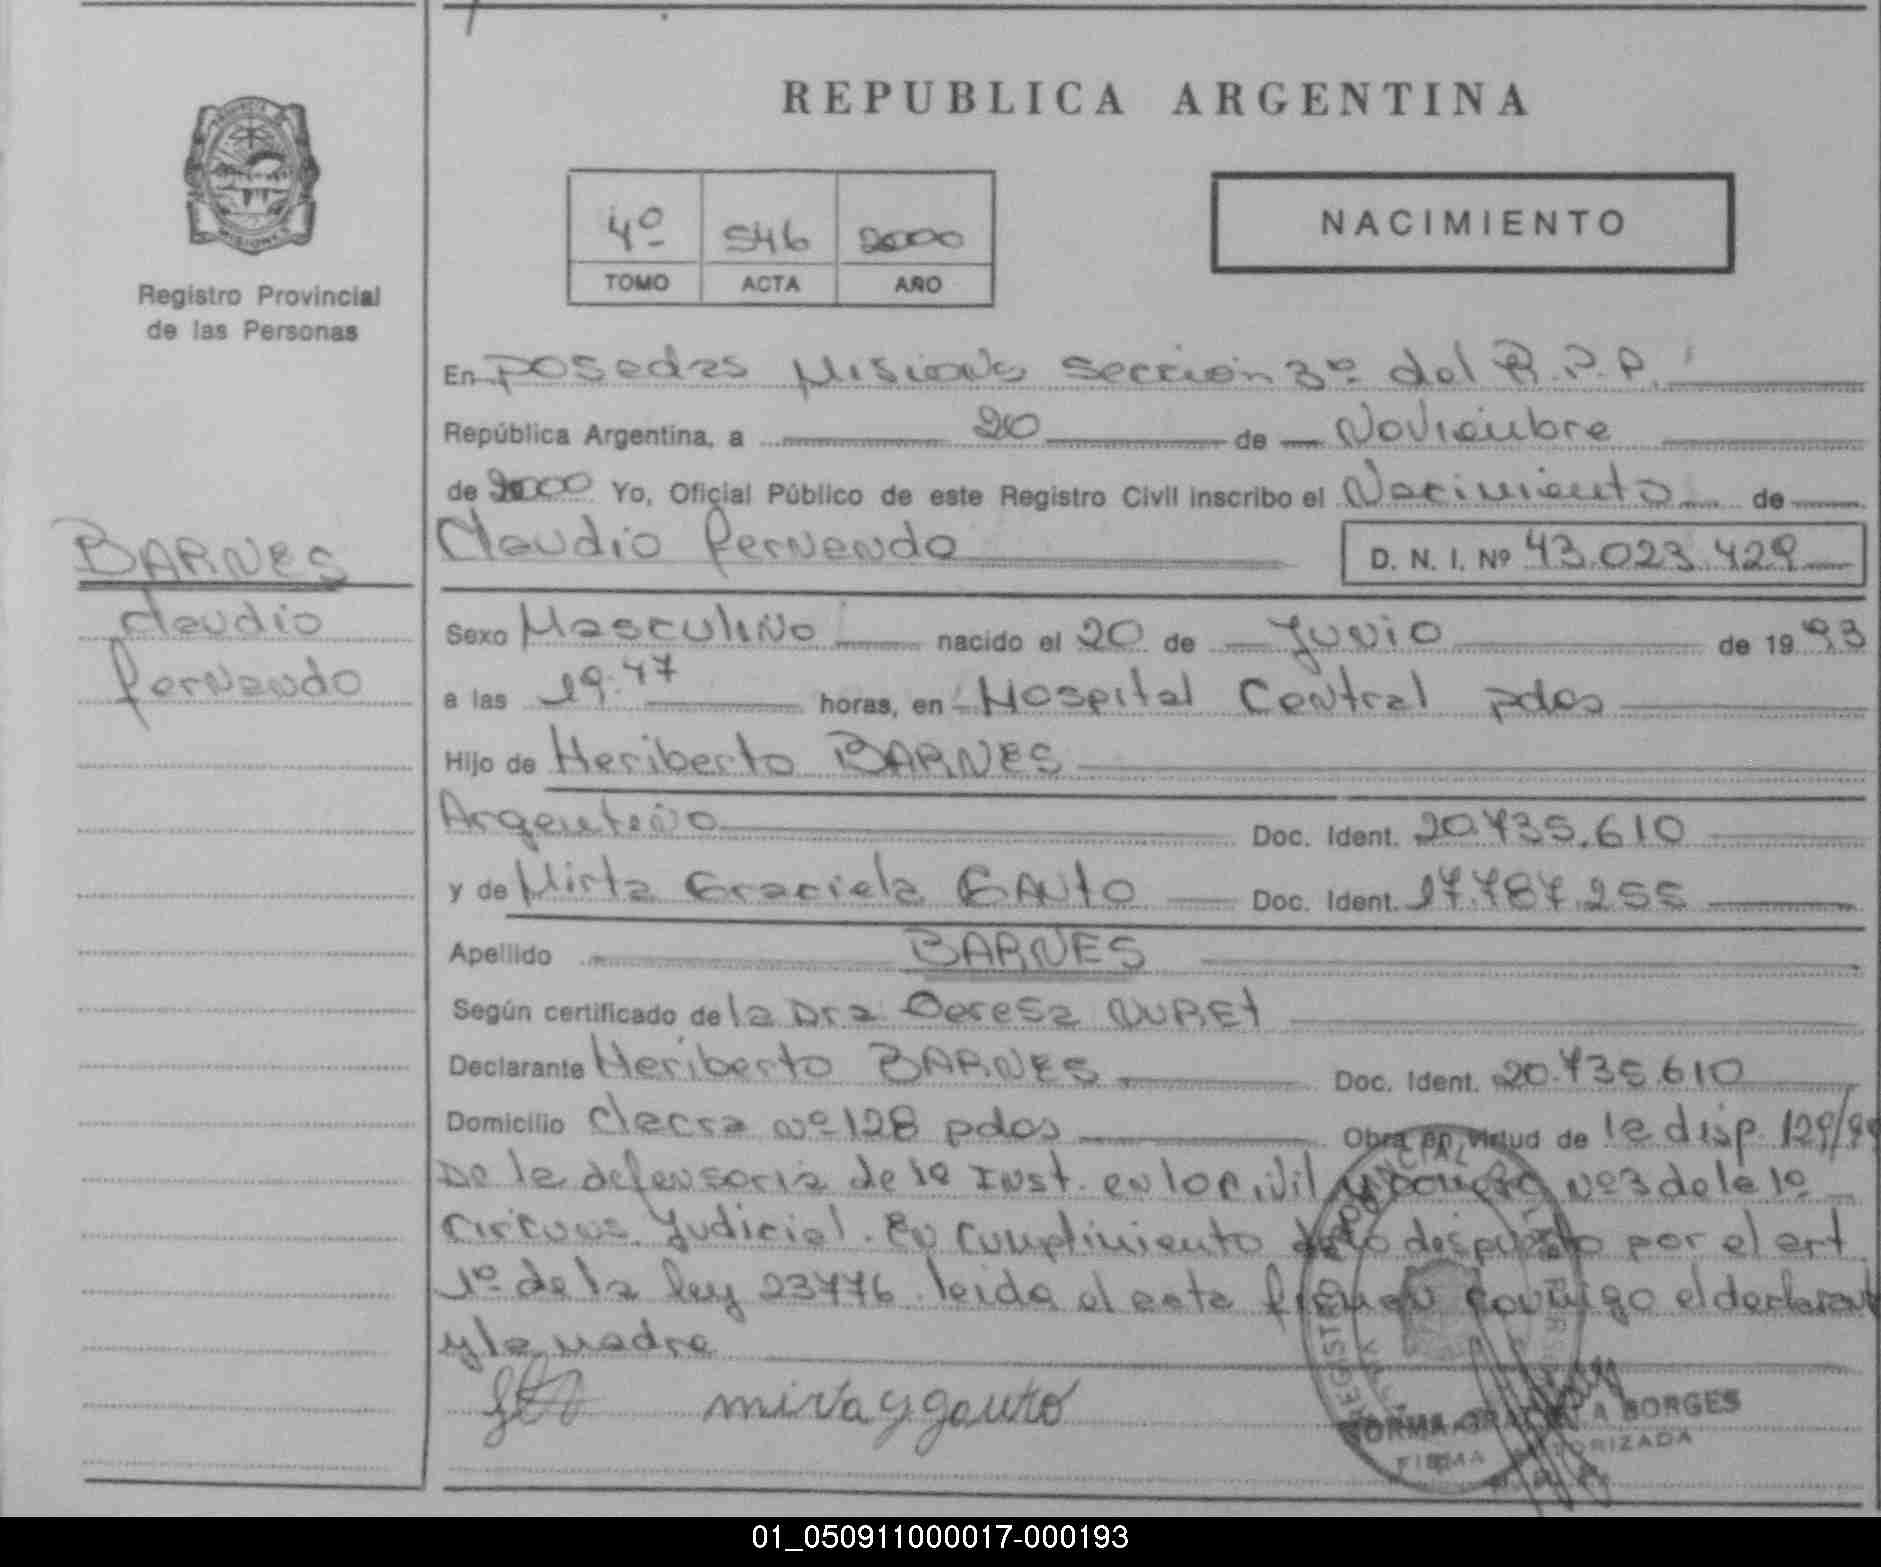 REPUBLICA ARGENTINA
MISIONES
Registro Provincial
de las Personas
4º 546 2000
TOMO ACTA AÑO
NACIMIENTO
En Posadas Misiones Sección 3º del R.P.P.
República Argentina, a 20 de Noviembre
de 2000 Yo, Oficial Público de este Registro Civil inscribo el Nacimiento de
BARNES
Claudio
Fernando
Claudio Fernando D. N. I. Nº 43.023.429
Sexo Masculino nacido el 20 de Junio de 1993
a las 19:47 horas, en Hospital Central pdas
Hijo de Heriberto BARNES
Argentino Doc. Ident. 20.735.610
y de Mirta Graciela GAUTO Doc. Ident. 17.787.255
Apellido BARNES
Según certificado de la Dra Teresa NURET
Declarante Heriberto BARNES Doc. Ident. 20.735.610
Domicilio Chacra nº 128 pdas Obra en virtud de la disp. 129/99
De la defensoria de 1º Inst. en lo Civil y Comerc Nº 3 de la 1º
Circuns. Judicial. En cumplimiento de lo dispuesto por el art
1º de la ley 23776 leida el acta firman conmigo el declarant
y la madre
mirta g gauto
REGISTRO PROVINCIAL DE LAS PER
NORMA GRACIELA BORGES
FIRMA AUTORIZADA
01_050911000017-000193